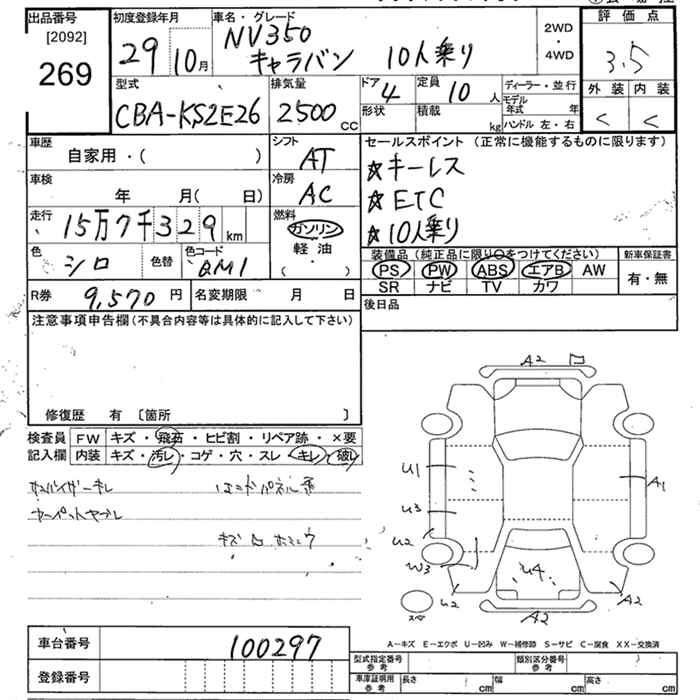 出品番号
[2092]
269
初度登録年月
29 10月
車名・グレード
NV350
キャラバン 10人乗り
2WD
・
4WD
評価点
3.5
外装 内装
型式
CBA-KS2E26
排気量
2500
cc
ドア 4
形状
定員 10 人
積載 kg
ディーラー・並行
モデル年式 年
ハンドル 左・右
車歴
自家用・( )
シフト
AT
車検
年 月( 日)
冷房
AC
走行
15万7千329 km
燃料
ガソリン
軽油
( ・ )
色
シロ
色替
色コード
QM1
R券 9,570 円
名変期限 月 日
セールスポイント (正常に機能するものに限ります)
☆キーレス
☆ETC
☆10人乗り
装備品(純正品に限り○をつけてください)
PS PW ABS エアB AW
SR ナビ TV カワ
新車保証書
有・無
後日品
注意事項申告欄(不具合内容等は具体的に記入して下さい)
修復歴 有 〔箇所 〕
検査員
記入欄
FW キズ・飛石・ヒビ割・リペア跡・×要
内装 キズ・汚レ・コゲ・穴・スレ・キレ・破レ
A2
U1
A1
U3
U2
W3
U4
U2
A2
A2
スペア
A-キズ E-エクボ U-凹み W-補修跡 S-サビ C-腐食 XX-交換済
車台番号 100297
登録番号
型式指定番号
参考
類別区分番号
参考
車庫証明用
参考
長さ cm 幅 cm 高さ cm